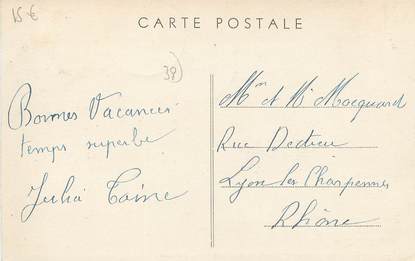 15 €
CARTE POSTALE
38
Bonnes Vacances
temps superbe
Julia
Mme et Mr Macquard
Rue
Lyon les Charpennes
Rhône